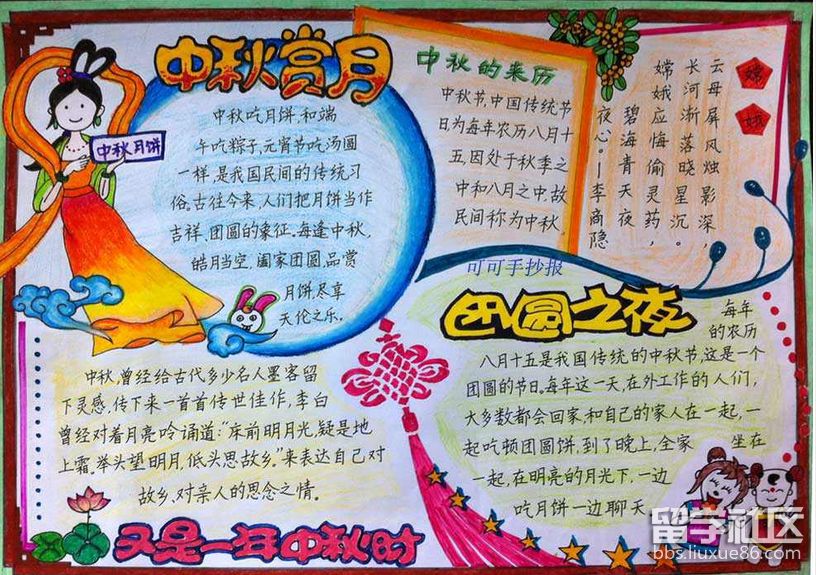 中秋赏月
中秋吃月饼,和端
午吃粽子,元宵节吃汤圆
一样,是我国民间的传统习
俗。古往今来,人们把月饼当作
吉祥、团圆的象征。每逢中秋,
皓月当空,阖家团圆,品赏
月饼,尽享
天伦之乐。
中秋月饼
中秋的来历
中秋节,中国传统节
日为每年农历八月十
五,因处于秋季之
中和八月之中,故
民间称为中秋。
嫦娥
云母屏风烛影深,
长河渐落晓星沉。
嫦娥应悔偷灵药,
碧海青天夜
夜心。—李商隐
可可手抄报
团圆之夜
每年
的农历
八月十五是我国传统的中秋节,这是一个
团圆的节日。每年这一天,在外工作的人们,
大多数都会回家,和自己的家人在一起,一
起吃顿团圆饼,到了晚上,全家 坐在
一起,在明亮的月光下,一边
吃月饼一边聊天
中秋,曾经给古代多少名人墨客留
下灵感,传下来一首首传世佳作,李白
曾经对着月亮吟诵道:"床前明月光,疑是地
上霜,举头望明月,低头思故乡。"来表达自己对
故乡,对亲人的思念之情。
又是一年中秋时
留学社区
bbs.liuxue86.com